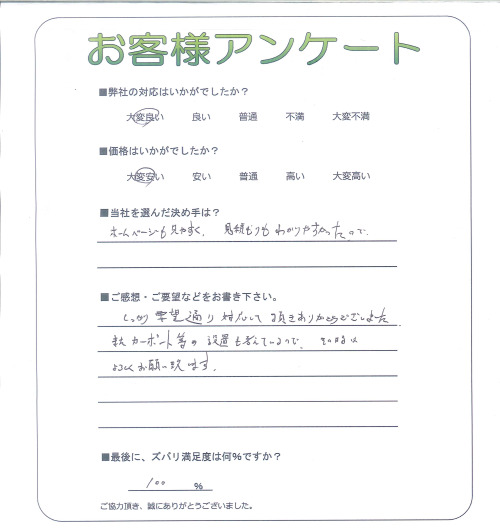 お客様アンケート
■弊社の対応はいかがでしたか？
大変良い 良い 普通 不満 大変不満
■価格はいかがでしたか？
大変安い 安い 普通 高い 大変高い
■当社を選んだ決め手は？
ホームページも見やすく、見積もりもわかりやすかったので。
■ご感想・ご要望などをお書き下さい。
しっかり要望通り対応して頂きありがとうございました
またカーポート等の設置も考えているので、その時は
よろしくお願い致します。
■最後に、ズバリ満足度は何％ですか？
100 ％
ご協力頂き、誠にありがとうございました。